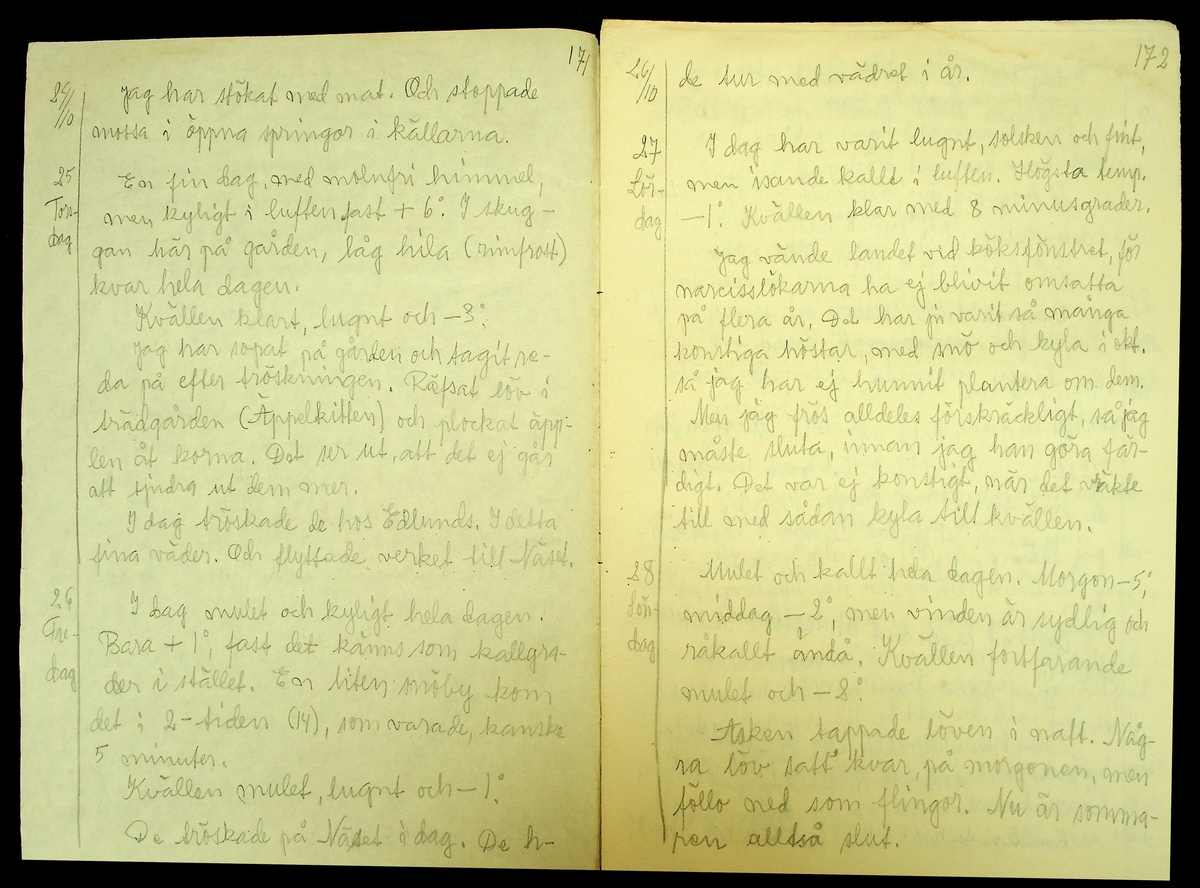 171
24/10
Jag har stökat med mat. Och stoppade
mossa i öppna springor i källarna.
25
Tors-
dag
En fin dag, med molnfri himmel,
men kyligt i luften fast + 6°. I skug-
gan här på gården, låg hila (rimfrost)
kvar hela dagen.
Kvällen klart, lugnt och -3°.
Jag har sopat på gården och tagit re-
da på efter tröskningen. Räfsat löv i
trädgården (Äppelkitten) och plockat äpp-
len åt korna. Det ser ut, att det ej går
att tjudra ut dem mer.
I dag tröskade de hos Edlunds. I detta
fina väder. Och flyttade verket till Näset.
26
Fre-
dag
I dag mulet och kyligt hela dagen.
Bara + 1°, fast det känns som kallgra-
der i stället. En liten snöby kom
det i 2-tiden (14), som varade, kanske
5 minuter.
Kvällen mulet, lugnt och - 1°.
De tröskade på Näset i dag. De h-
172
26/10
de tur med vädret i år.
27
Lör-
dag
I dag har varit lugnt, solsken och fint,
men isande kallt i luften. Högsta temp.
-1°. Kvällen klar med 8 minusgrader.
Jag vände landet vid köksfönstret, för
narcisslökarna ha ej blivit omsatta
på flera år. Det har ju varit så många
konstiga höstar, med snö och kyla i okt.
så jag har ej hunnit plantera om dem.
Men jag frös alldeles förskräckligt, så jag
måste sluta, innan jag han göra fär-
digt. Det var ej konstigt, när det växte
till med sådan kyla till kvällen.
28
Sön-
dag
Mulet och kallt hela dagen. Morgon -5°,
middag -2°, men vinden är sydlig och
råkallt ändå. Kvällen fortfarande
mulet och -8°.
Asken tappade löven i natt. Någ-
ra löv satt kvar, på morgonen, men
föllo ned som flingor. Nu är somma-
ren alltså slut.